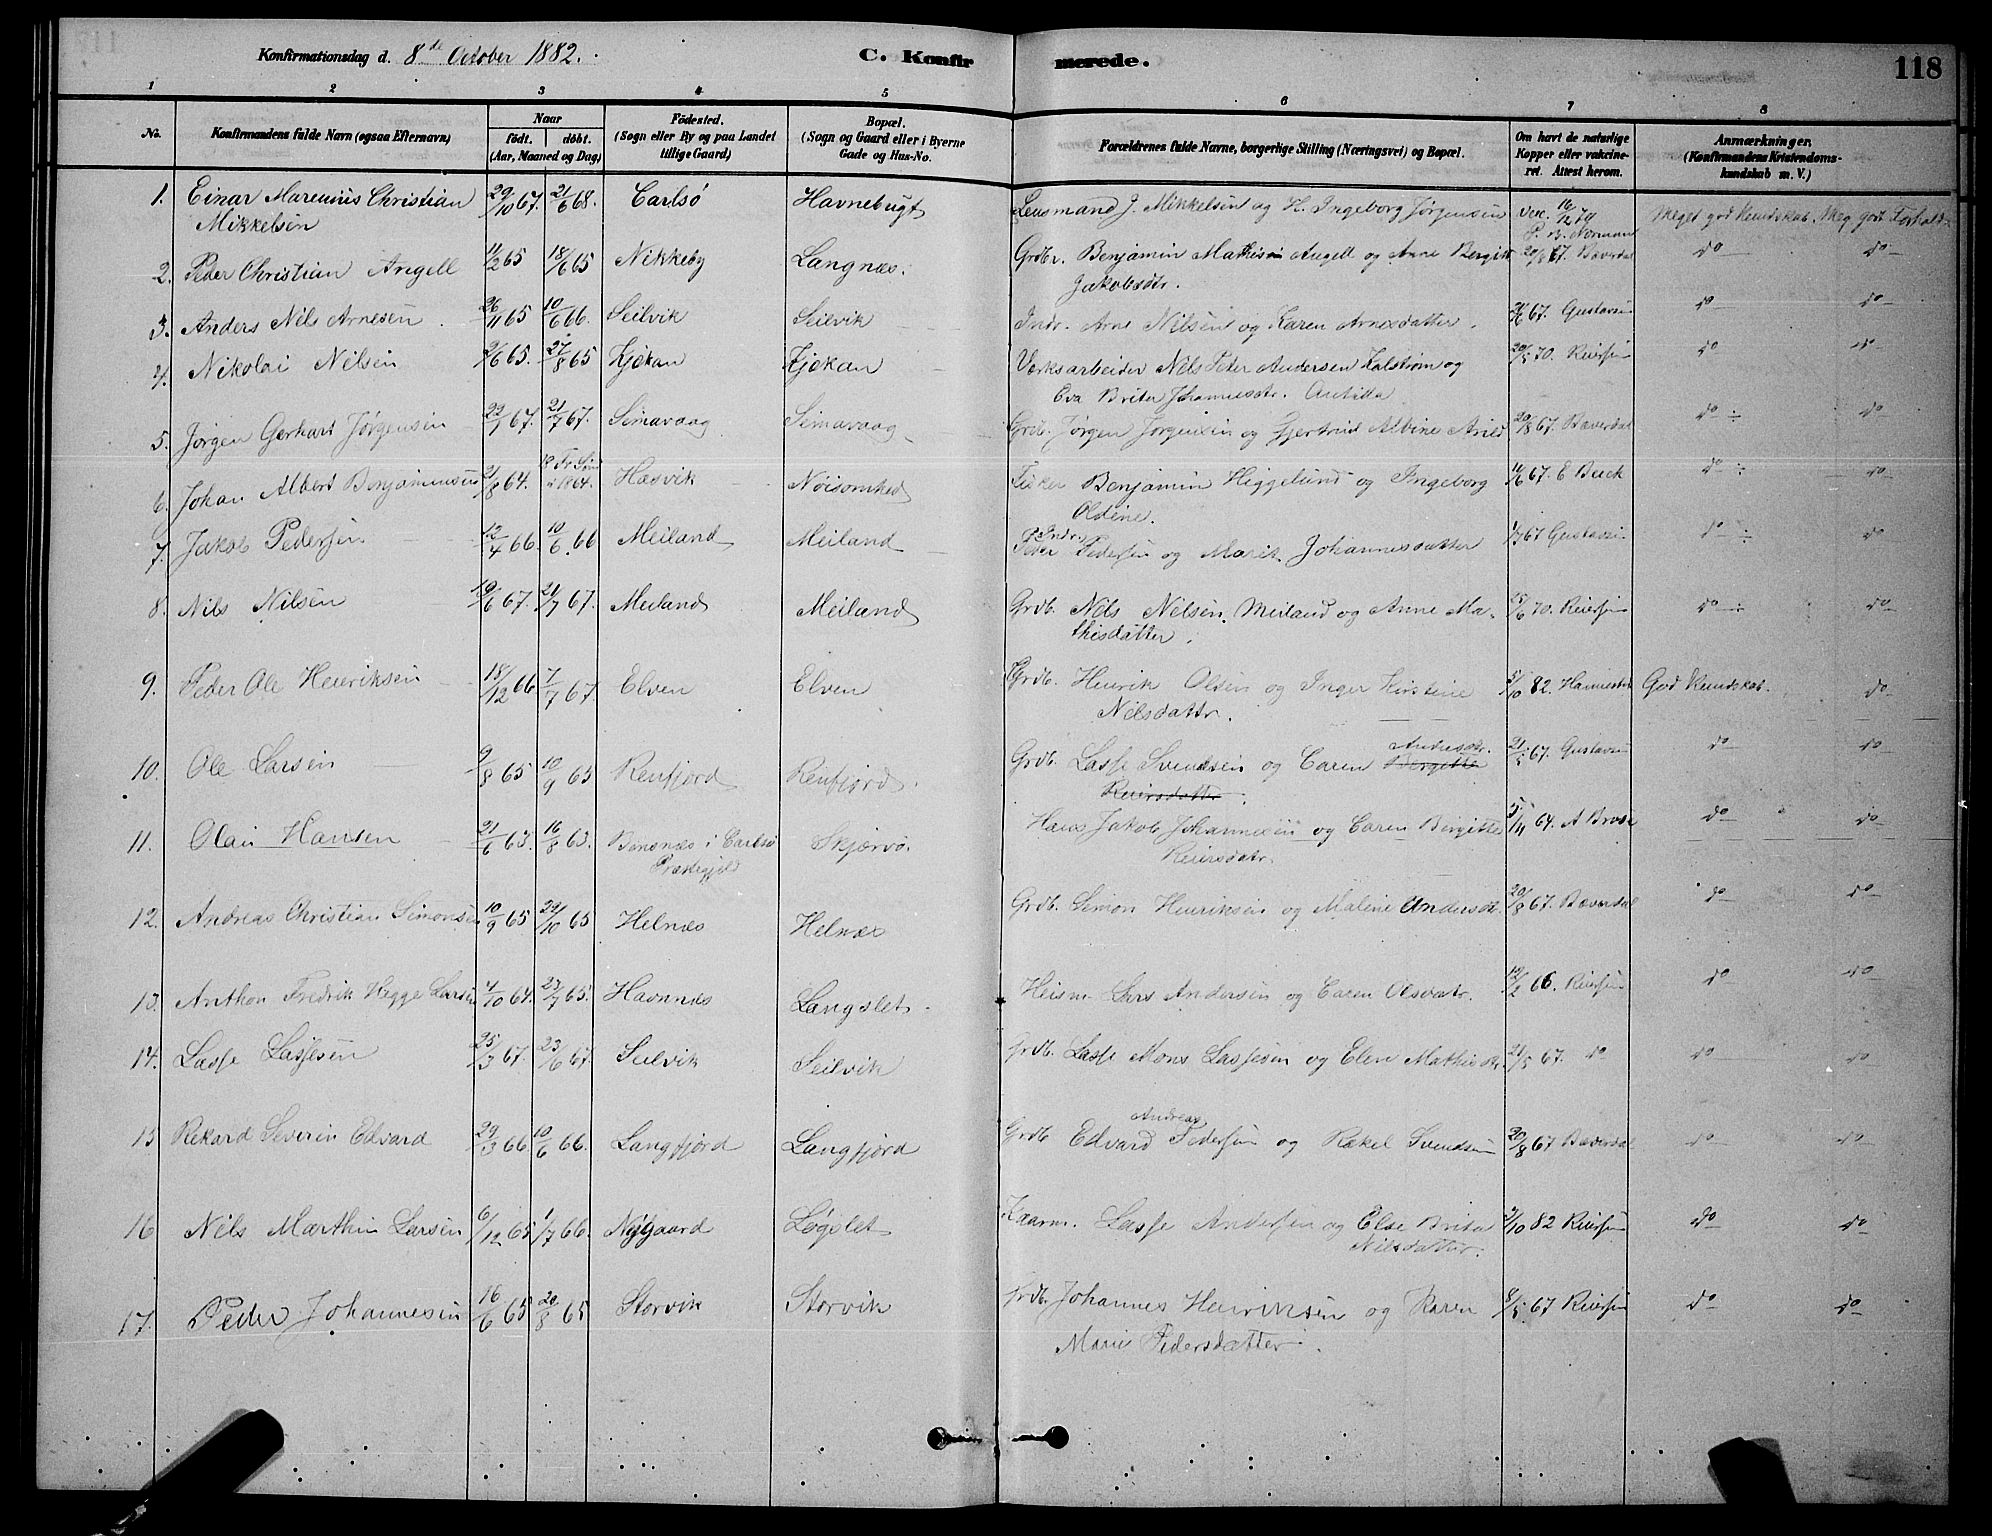 Konfirmationsdag d. 8de October 1882. C. Konfirmerede. 118
1 2 3 4 5 6 7 8
No. Konfirmandens fulde Navn (ogsaa Efternavn) Naar födt. döbt. (Aar, Maaned og Dag) Födested. (Sogn eller By og paa Landet tillige Gaard) Bopæl. (Sogn og Gaard eller i Byerne Gade og Hus-No. Forældrenes fulde Navne, borgerlige Stilling (Næringsvei) og Bopæl. Om havt de naturlige Kopper eller vakcineret. Attest herom. Anmærkninger. (Konfirmandens Kristendomskundskab m. V.)
1. Einar Marenius Christian 29/10 67. 21/6 68. Carlsö Havnebugt Lensmand J. Mikkelsen og H. Ingeborg Jørgensen 16/12 79 Meget god Kundskab. Meg. godt Forhold
Mikkelsen
2. Peder Christian Angell 11/2 65 18/6 65 Nikkeby Langnæs. Grdbr. Benjamin Mathisen Angell og Anne Bergitte 20/8 67. Bæverdal do do
Jakobsdtr.
3. Anders Nils Arnesen 26/11 65 10/6 66. Seilvik Seilvik Indr. Arne Nilsen og Karen Arnesdatter. 67. Gustavsen do do
4. Nikolai Nilsen 2/6 65. 27/8 65 Kjækan Kjækan Værksarbeider Nils Peter Andersen Kalstrøm og 20/5 70. Reiersen do do
Eva Brita Johannesdtr. Antilla
5. Jørgen Gerhart Jørgensen 22/1 67. 21/7 67. Simavaag Simavaag Grdb. Jørgen Jørgensen og Gjertrud Albine Arild 20/8 67. Bæverdal do do
6. Johan Albert Benjaminsen 2/8 64. 18 Tr. Sønd i 1864. Hasvik Nöisomhed Fisker Benjamin Heggelund og Ingeborg 16/6 67. E Beck do do
Oldine.
7. Jakob Pedersen 12/4 66. 10/6 66 Meiland Meiland Indr. Peder Pedersen og Marit Johannesdatter 67 Gustavsen do do
8. Nils Nilsen 19/6 67. 21/7 67. Meiland Meiland Grdb. Nils Nilsen Meiland og Anne Ma- 25/6 70. Reiersen do do
thisdatter.
9. Peder Ole Henriksen 18/12 66 7/7 67. Elven Elven Grdb. Henrik Olsen og Inger Kirstine 5/10 82. God Kundskab. do
Nilsdattr.
10. Ole Larsen 9/8 65 10/9 65 Renfjord Renfjord. Grdb. Lasse Svendsen og Caren Bergitte Andersdtr. 21/5 67. Gustavsen do do
Reiersdatter.
11. Olai Hansen 21/6 63. 16/8 63. i Carlsö Skjærvö. Hans Jakob Johannesen og Caren Birgitte 5/11 64. A do do
Præstegjeld Reiersdatr.
12. Andreas Christian Simonsen 10/9 65 29/10 65 Helnæs Helnæs Grdb. Simon Henriksen og Malene Andersdtr. 20/8 67. Bæverdal do do
13. Anthon Fredrik Hegge Larsen 4/10 64. 23/7 65. Havnnæs Langslet. Lars Andersen og Caren Olsdatr. 12/2 66. Reiersen do do
14. Lasse Lassesen 25/3 67. 23/6 67. Seilvik Seilvik Grdb. Lasse Mons Lassesen og Elen Mathisdtr. 21/5 67. do do do
15 Rekard Severin Edvard 29/3 66 10/6 66. Langfjord Langfjord Grdb. Edvard Andreas Pedersen og Rakel Svendsen 20/8 67 Bæverdal do do
16 Nils Marthin Larsen 6/12 65 1/7 66. Nygaard Løgslet Kaarm. Lasse Andersen og Else Brita /10 82 Reiersen do do
Nilsdatter.
17. Peder Johannesen 16/6 65 20/8 65 Storvik Storvik Grdb. Johannes Henriksen og Karen 67 Reiersen do do
Marie Pedersdatter.